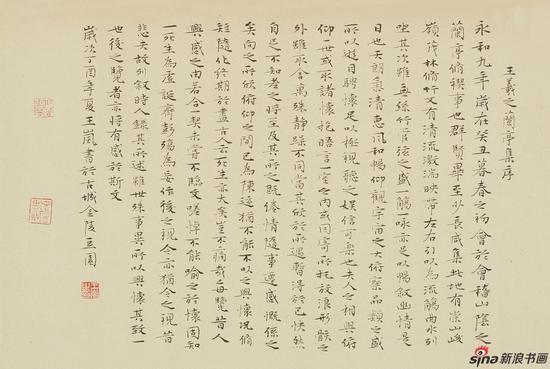 王羲之蘭亭集序
永和九年歲在癸丑暮春之初會於會稽山陰之
蘭亭脩禊事也群賢畢至少長咸集此地有崇山峻
嶺茂林脩竹又有清流激湍映帶左右引以為流觴曲水列
坐其次雖無絲竹管弦之盛一觴一詠亦足以暢敘幽情是
日也天朗氣清惠風和暢仰觀宇宙之大俯察品類之盛
所以遊目騁懷足以極視聽之娛信可樂也夫人之相與俯
仰一世或取諸懷抱晤言一室之內或因寄所託放浪形骸之
外雖取舍萬殊靜躁不同當其欣於所遇暫得於己快然
自足不知老之將至及其所之既倦情隨事遷感慨係之
矣向之所欣俯仰之間已為陳迹猶不能不以之興懷況脩
短隨化終期於盡古人云死生亦大矣豈不痛哉每覽昔人
興感之由若合一契未嘗不臨文嗟悼不能喻之於懷固知
一死生為虛誕齊彭殤為妄作後之視今亦猶今之視昔
悲夫故列敘時人錄其所述雖世殊事異所以興懷其致一
也後之覽者亦將有感於斯文
歲次丁酉年夏王嵐書於古城金陵豆園
sina新浪书画